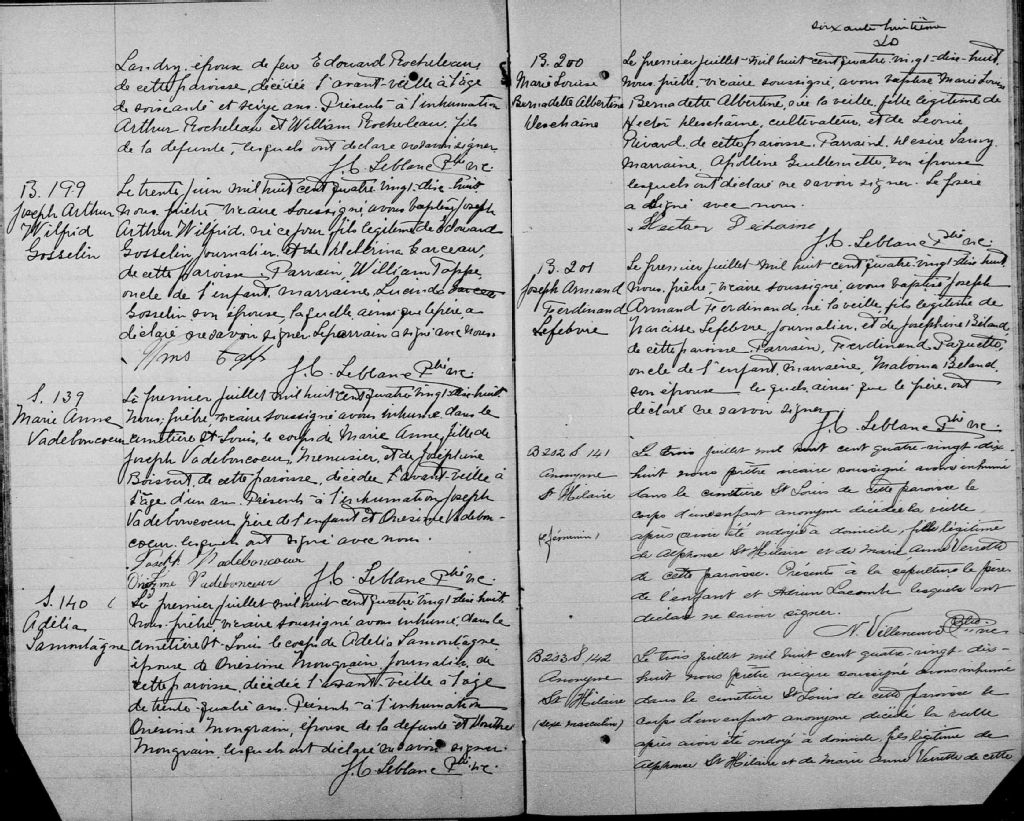 Landry, épouse de feu Edouard Rocheleau
de cette paroisse, décédée l'avant-veille à l'âge
de soixante et seize ans. Présents à l'inhumation
Arthur Rocheleau et William Rocheleau, fils
de la defunte, lesquels ont déclaré ne savoir signer
J. C. Leblanc Ptre vic.
B. 199
Joseph Arthur
Wilfrid
Gosselin
Le trente juin mil huit cent quatre vingt-dix-huit
Nous, prêtre vicaire soussigné avons baptisé Joseph
Arthur Wilfrid, né ce jour, fils legitime de Edouard
Gosselin, journalier, et de Garceau,
de cette paroisse. Parrain, William
oncle de l'enfant, marraine, Lucinda
Gosselin son épouse, laquelle, ainsi que le père a
déclaré ne savoir signer le parrain a signé avec nous.
J. C. Leblanc Ptre vic.
S. 139
Marie Anne
Vadeboncoeur
Le premier juillet mil huit cent quatre vingt dix-huit
Nous, prêtre vicaire soussigné avons inhumé dans le
cimetière St Louis, le corps de Marie Anne, fille de
Joseph Vadeboncoeur, Menuisier, et de Joséphine
Boisvert, de cette paroisse, décédée l'avant-veille à
l'âge d'un an. Présents à l'inhumation Joseph
Vadeboncoeur, père de l'enfant et Onesime Vadebon-
coeur, lesquels ont signé avec nous.
Joseph Vadeboncoeur
Onezime Vadeboncoeur
J. C. Leblanc Ptre vic.
S. 140
Adélia
Lamontagne
Le premier juillet mil huit cent quatre vingt dix-huit
Nous, prêtre vicaire soussigné avons inhumé, dans le
cimetière St Louis le corps de Adelia Lamontagne
épouse de Onesime Mongrain, journalier, de
cette paroisse, décédée l'avant-veille à l'âge
de trente-quatre ans. Présents à l'inhumation
Onesime Mongrain, épouse de la defunte et
Mongrain, lesquels ont déclaré ne savoir signer.
J. C. Leblanc Ptre vic.
soixante huitième
B. 200
Marie Louise
Bernadette Albertine
Deschaine
Le premier juillet mil huit cent quatre vingt-dix-huit,
nous, prêtre, vicaire soussigné, avons baptisé Marie Louise
Bernadette Albertine, née la veille, fille legitime de
Hector Deschaine, cultivateur, et de Leonie
Rivard, de cette paroisse. Parrain, Desire
Marraine, Apolline Guillemette, son épouse
lesquels ont déclaré ne savoir signer. Le père
a signé avec nous.
J. C. Leblanc Ptre vic.
B. 201
Joseph Armand
Ferdinand
Lefebvre
Le premier juillet mil huit cent quatre-vingt dix huit
Nous, prêtre, vicaire soussigné, avons baptisé Joseph
Armand Ferdinand, né la veille, fils legitime de
Narcisse Lefebvre, journalier, et de Josephine Béland,
de cette paroisse. Parrain, Ferdinand Paquette,
oncle de l'enfant, marraine, Malvina Beland,
son épouse lesquels ainsi que le père, ont
déclaré ne savoir signer
J. C. Leblanc Ptre vic.
B 202 S 141
Anonyme
St Hilaire
(féminin)
Le trois juillet mil huit cent quatre-vingt-dix-
huit nous prêtre vicaire soussigné avons inhumé
dans le cimetière St Louis de cette paroisse le
corps d'un enfant anonyme décédée la veille
après avoir été ondoyé à domicile, fille légitime
de Alphonse St Hilaire et de Marie Anne Verrette
de cette paroisse. Présents à la sépulture le père
de l'enfant et Adrien Lacombe lesquels ont
déclaré ne savoir signer.
N. Villeneuve Ptre Vicaire
B 203 S 142
Anonyme
St Hilaire
(sexe masculin)
Le trois juillet mil huit cent quatre-vingt-dix-
huit nous prêtre vicaire soussigné avons inhumé
dans le cimetière St Louis de cette paroisse le
corps d'un enfant anonyme décédé la veille
après avoir été ondoyé à domicile, fils légitime de
Alphonse St Hilaire et de Marie Anne Verrette de cette